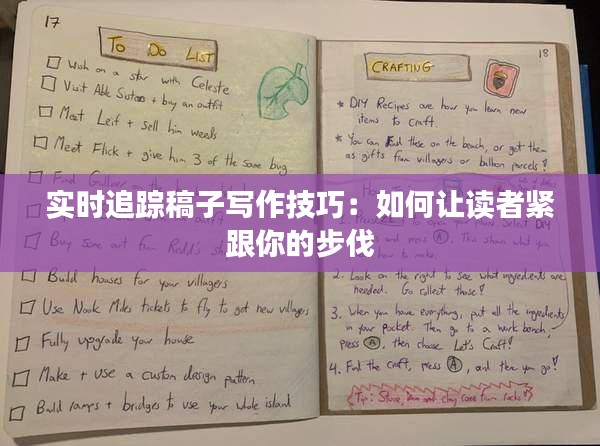 17
TO DO LIST
Wish on a star with Celeste
Visit Able Sisters + buy an outfit
Meet Leif + sell him weeds
Meet Flick + give him 3 of the same bug
Find Gulliver on the
Buy some art from Redd's
Build houses for your villagers
Use Nook Miles tickets to fly to get new villagers
Fully upgrade your house
Make + use a custom design pattern
Build ramps + bridges to use your whole island
18
CRAFTING
* DIY Recipes are how you learn new
items to craft.
* You can find these on the beach, or get them
as gifts from villagers or balloon parcels!
实时追踪稿子写作技巧：如何让读者紧
跟你的步伐
This shows what you
how to make.
2. Look on the right to see what ingredients are
needed. Go collect those!
3. When you have everything, put all the ingredients
in your pocket. Then go to a work bench,
press A, then choose Let's Craft!
4. Find the craft, press A, and there you go!
Tip: Stone, iron and clay come from rocks!